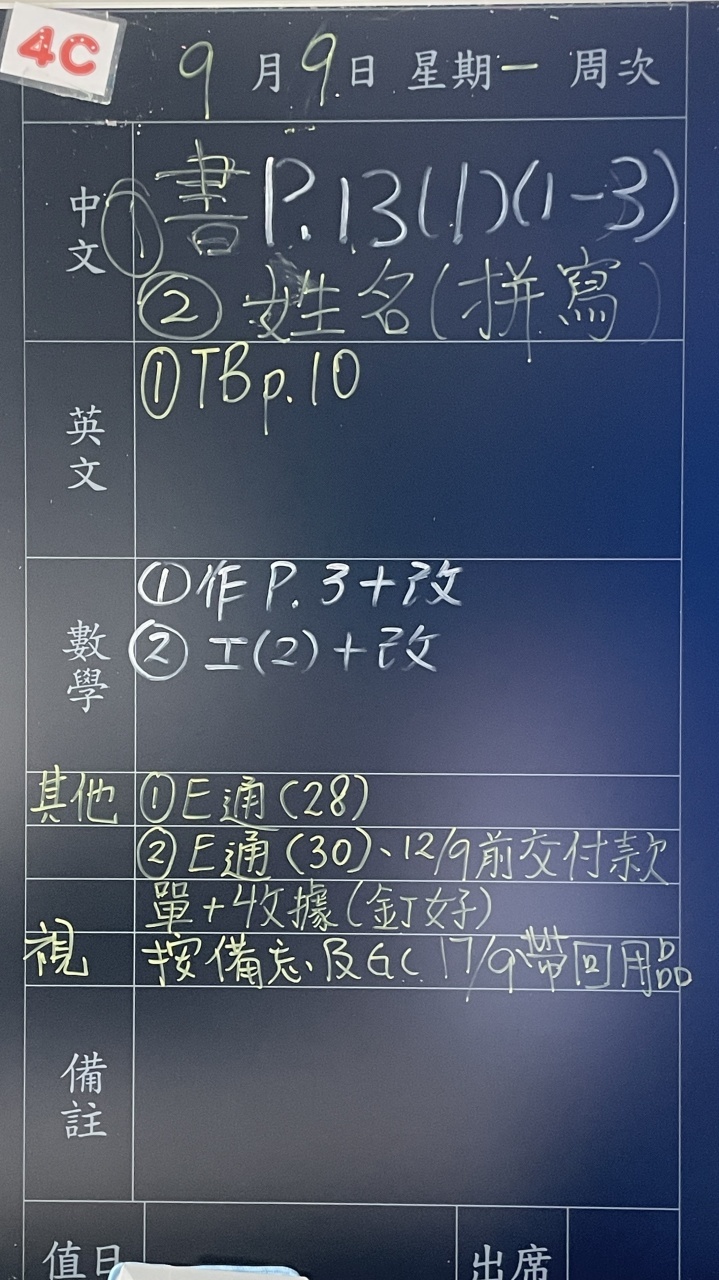 4C
9月9日 星期一 周次
中文 ①書P.13(1)(1-3)
②姓名(拼寫)
英文 ①TB p.10
數學 ①作P.3+改
②工(2)+改
其他 ①E通(28)
②E通(30)、12/9前交付款
單+收據(釘好)
視 按備忘及GC 17/9帶回用品
備註
值日 出席